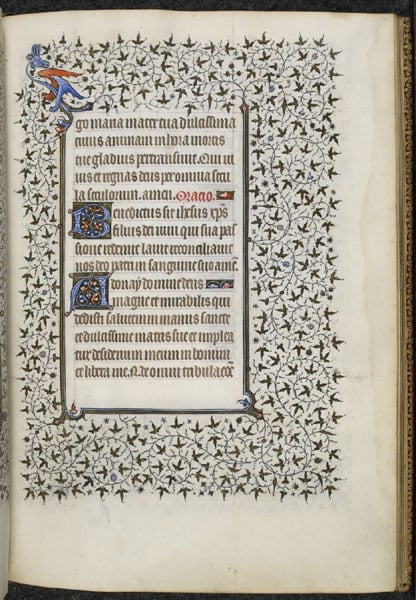 go maria mater tua dulcissima
cuius animam in hora mortis
tue gladius pertransiuit. Qui ui
uis et regnas deus per omnia secu
la seculorum. amen. Oracio.
Benedictus sit ihesus xp̄s
filius dei uiui qui sua pas
sione redemit lauit reconciliauit
nos deo patri in sanguine suo amē.
Adonay domine deus
magne et mirabilis qui
dedisti salutem in manus sancte
et dulcissime matris sue et implea
tur desiderium meum in bonum
et libera me .N. de omni tribulacōe